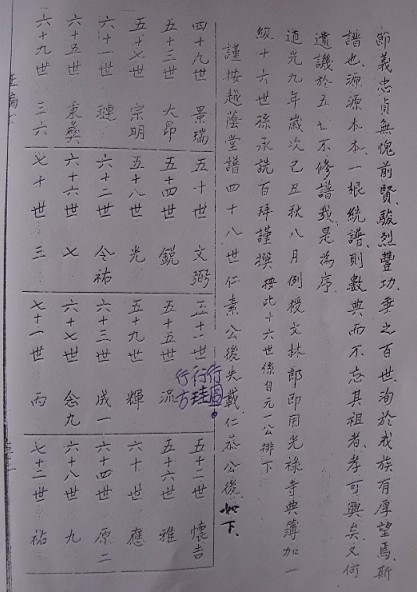 節義忠貞無愧前賢駿烈豐功垂之百世洵於我族有厚望焉斯
譜也源源本本一根統譜則數典而不忘其祖者孝可興矣又何
遺譏於五世不修譜哉是為序
道光九年歲次己丑秋八月例授文林郎即用光祿寺典簿加一
級十六世孫永詵百拜謹撰 按此十六世係自元一公排下
謹按越蔭堂譜四十八世仁素公後失載仁恭公後如下
行圓
行珪
行方
四十九世 景瑞 五十世 文弼 五十一世 五十二世 懷吉
五十三世 大昂 五十四世 銳 五十五世 流 五十六世 雅
五十七世 宗明 五十八世 光 五十九世 輝 六十世 應
六十一世 璉 六十二世 令祐 六十三世 成一 六十四世 原二
六十五世 秉彝 六十六世 七 六十七世 念九 六十八世 九
六十九世 三六 七十世 三 七十一世 丙 七十二世 祐